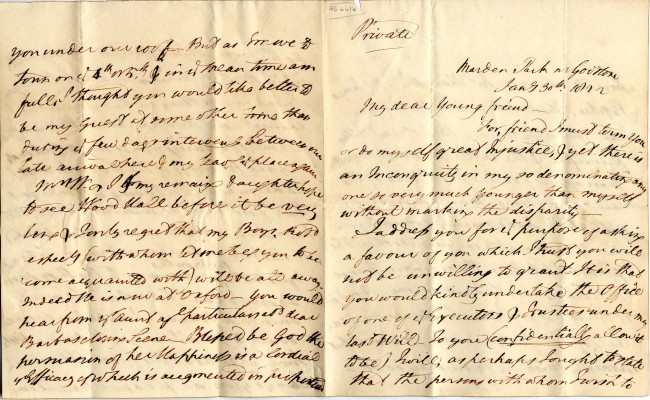 you under our roof. But as I move to
town on ye 4th or 5th, & in ye mean time am
full, I thought you would like better to
be my guest at some other time than
during ye few days intervening between our
late arrival here & my leavg ye place again
Mrs W. & I & my remaing daughter hope
to see Wood Hall before it be very
long & I only regret that my Boys, Robt
especly (with whom I shd like you to be
come acquainted with) will be all away.
Indeed He is now at Oxford — You would
hear from yr Aunt of ye particulars of dear
Barbara's own Scene — Blessed be God the
permasion of her Happiness is a Cordial
ye Efficacy of which is augmented in proportion
AS 44/4
Private
Marden Park nr Godstone
Jany 30th 1822
My dear Young friend —
For friend I must term you
or do myself great Injustice, & yet there is
an Incongruity in my so denominating any
one so very much younger than myself
without marking the disparity —
I address you for ye purpose of asking
a favour of you which I trust you will
not be unwilling to grant. It is that
you would kindly undertake the Office
of one of ye Executors & Trustees under my
last Will. To you (confidentially allow it
to be) I will, as perhaps I ought to state
that the persons with whom I wish to